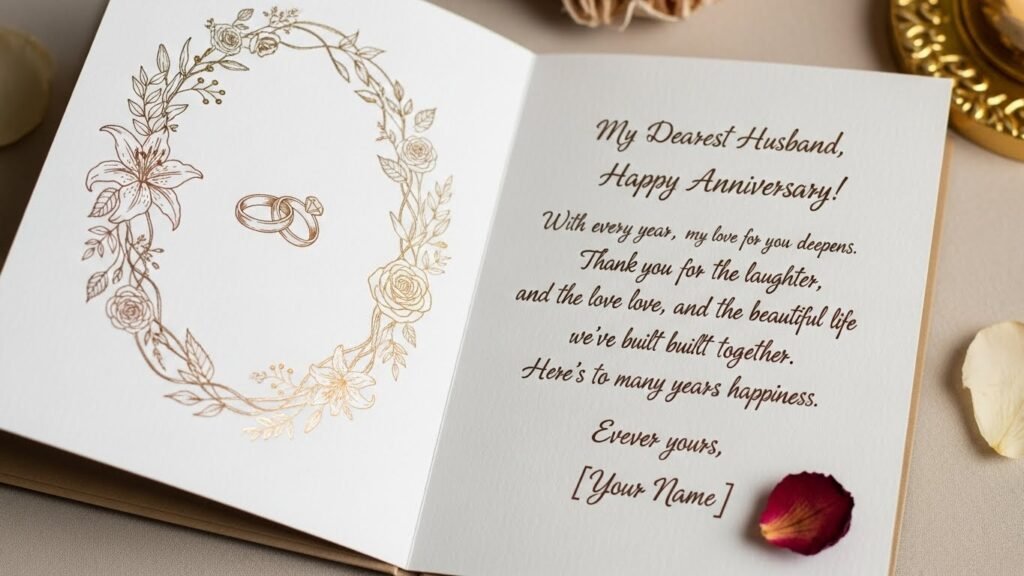 My Dearest Husband,
Happy Anniversary!
With every year, my love for you deepens.
Thank you for the laughter,
and the love love, and the beautiful life
we've built built together.
Here's to many years happiness.
Evever yours,
[Your Name]